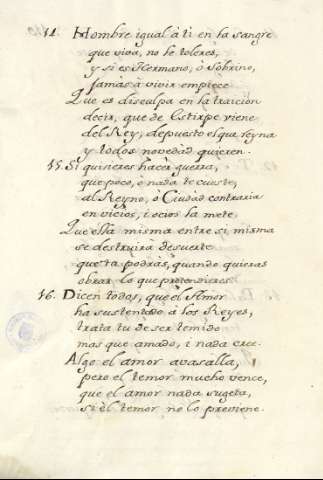 14. Hombre igual à ti en la sangre
que viva, no le toleres,
y si es Hermano, ò Sobrino,
jamàs à vivir empiece.
Que es disculpa en la traicion
decir, que de Estirpe viene
del Rey, depuesto el que reyna
y todos novedad quieren.
15. Si quisieres hacer guerra,
que poco, o nada te cueste,
al Reyno, ò Ciudad contraria
en vicios, i ocios la mete.
Que ella misma entre si misma
se destruirà de suerte
que tu podràs, quando quieras
obrar lo que pretendieres.
16. Dicen todos, que el Amor
ha sustentado à los Reyes,
trata tu de ser temido
mas que amado, i nada cree.
Algo el amor avasalla,
pero el temor mucho vence,
que el amor nada sugeta,
si el temor no lo previene.